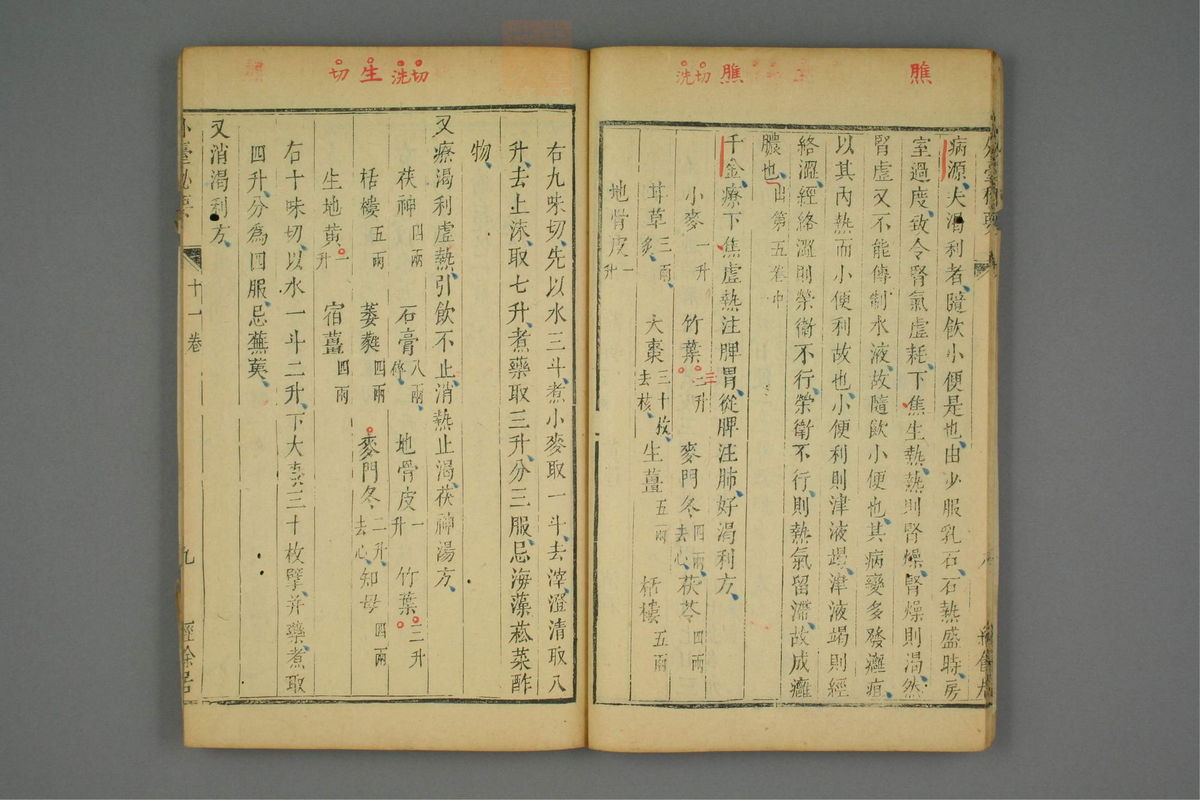 膲
膲
切
洗
病源夫渴利者隨飲小便是也由少服乳石石熱盛時房
室過度致令腎氣虛耗下焦生熱熱則腎燥腎燥則渴然
腎虛又不能傳制水液故隨飲小便也其病變多發癰疽
以其內熱而小便利故也小便利則津液竭津液竭則經
絡澀經絡澀則榮衛不行榮衛不行則熱氣留滯故成癰
膿也出第五卷中
千金療下焦虛熱注脾胃從脾注肺好渴利方
小麥一升 竹葉三升 麥門冬四兩去心 茯苓四兩
甘草三兩炙 大棗三十枚去核 生薑五兩 栝樓五兩
地骨皮一升
切
洗
生
切
右九味切先以水三斗煮小麥取一斗去滓澄清取八
升去上沫取七升煮藥取三升分三服忌海藻菘菜酢
物
又療渴利虛熱引飲不止消熱止渴茯神湯方
茯神四兩 石膏八兩碎 地骨皮一升 竹葉二升
栝樓五兩 萎蕤四兩 麥門冬二升去心 知母四兩
生地黃一升 宿薑四兩
右十味切以水一斗二升下大棗三十枚擘并藥煮取
四升分為四服忌蕪荑
又消渴利方
外臺祕要 十一卷 九 經餘居